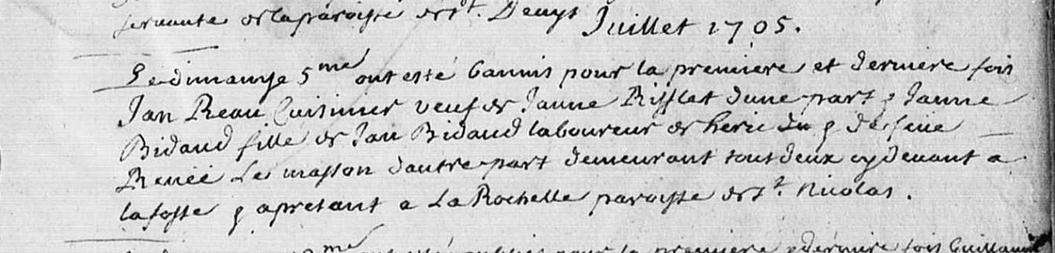 servante de la paroisse de St. Denys
Juillet 1705.
Le dimanche 5me ont esté bannis pour la premiere et derniere fois
Jan Reau Cuisinier veuf de Janne Rifflet dune part & Janne
Bidaud fille de Jan Bidaud laboureur de & de feue
Renée Le masson dautre part demeurant tout deux cy devant a
la fosse & apresant a La Rochelle paroisse de St. Nicolas.
me pour la premiere & derniere fois Guillaume